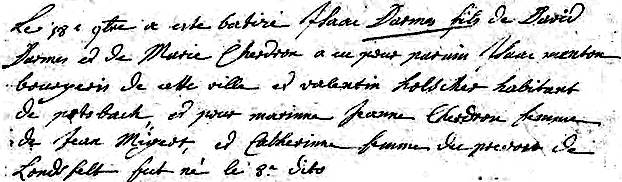 Le 18e 9bre a este batizé Isaac Darmes fils de David
Darmes et de Marie Cherdron a eu pour parain Isaac menton
bourgeois de cette ville et valentin holscher habitant
de potsback et pour marinne Jeanne Cherdron femme
de Jean et Catherinne femme du prevost de
Londsfelt fut né le 8e dito